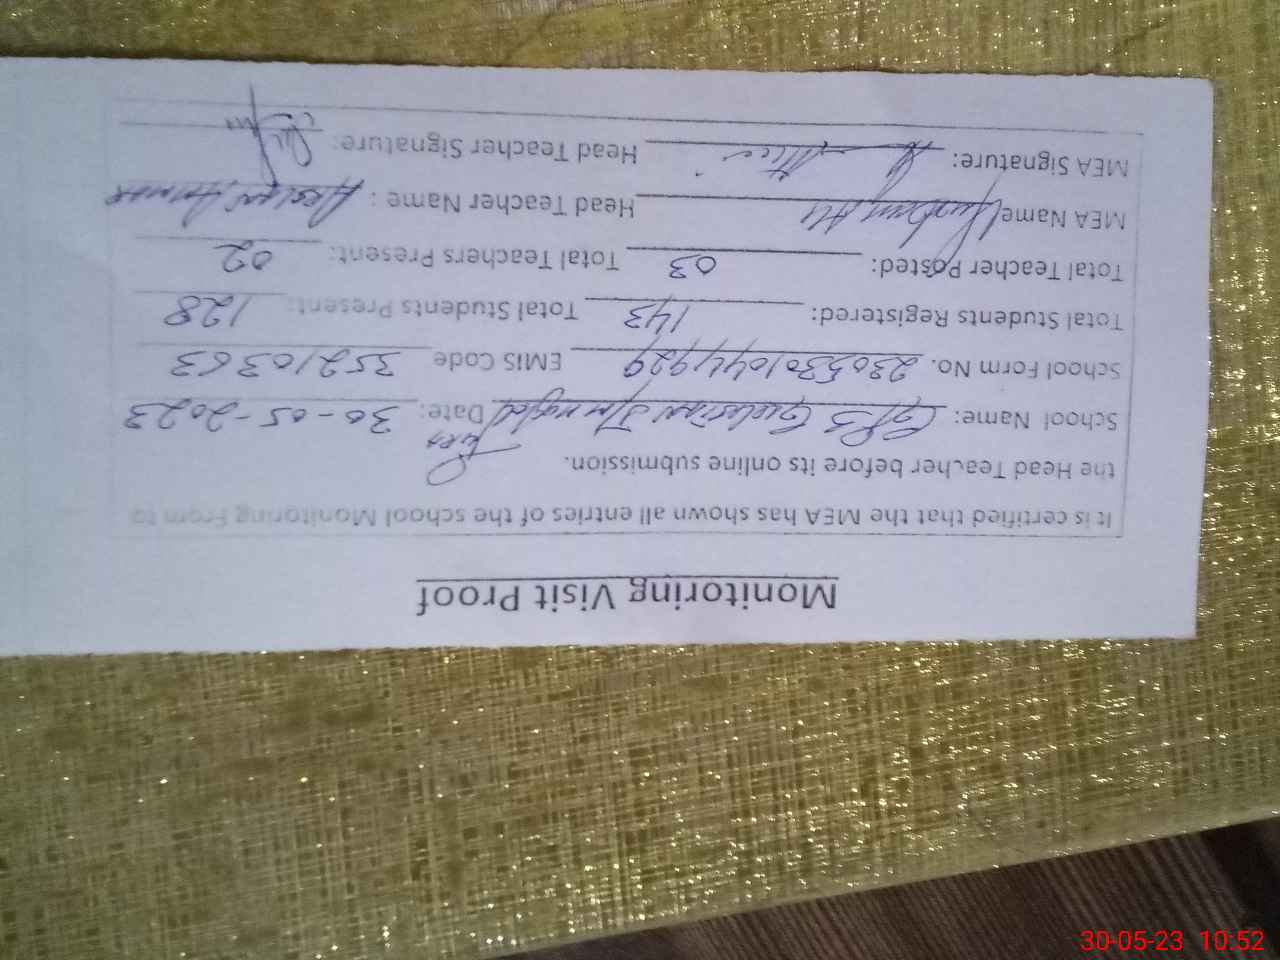 Monitoring Visit Proof
It is certified that the MEA has shown all entries of the school Monitoring From to
the Head Teacher before its online submission.
School Name: Date: 30-05-2023
School Form No. 2305301044929 EMIS Code 35210363
Total Students Registered: 143 Total Students Present: 128
Total Teacher Posted: 03 Total Teachers Present: 02
MEA Name Head Teacher Name :
MEA Signature: Head Teacher Signature:
30-05-23 10:52